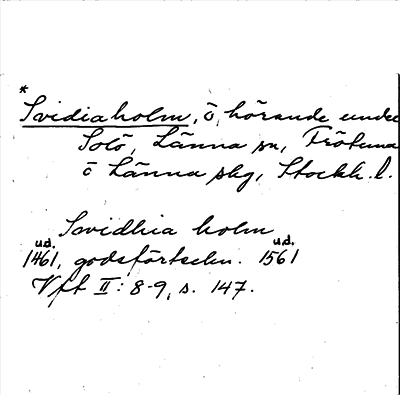 *
Svidiaholm, ö, hörande under
Solö, Länna sn, Frötuna
o Länna skg, Stockh. l.
Svidhia holm
u.d. u.d.
1461, godsförteckn. 1561
Vfl II: 8-9, s. 147.